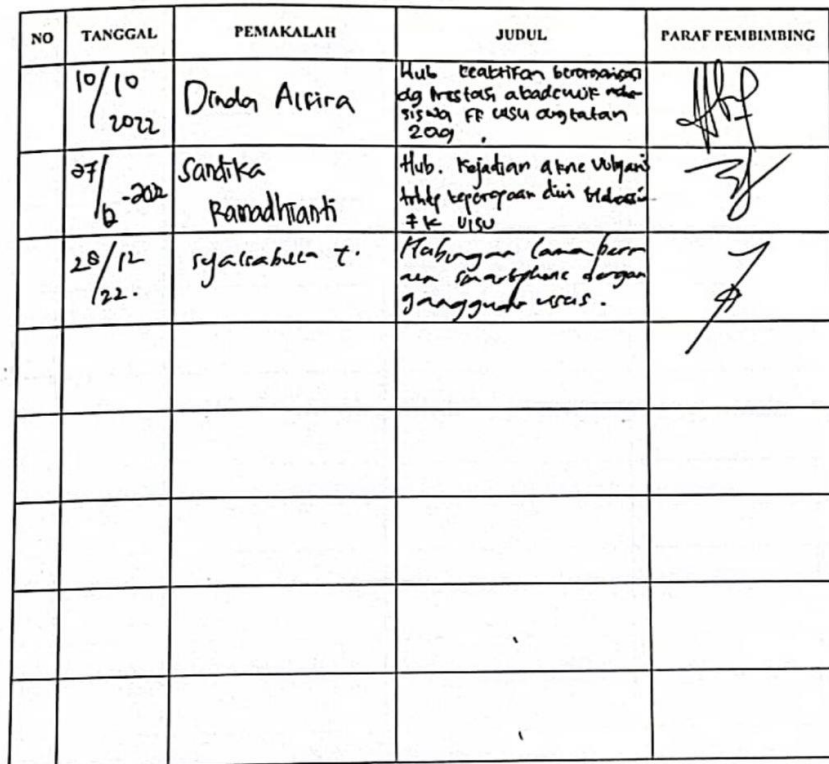 NO TANGGAL PEMAKALAH JUDUL PARAF PEMBIMBING
10/10
2022
Dinda Alfira
Hub keaktifan berorganisasi
dg Prestasi akademik maha-
siswa FF USU angkatan
2019.
27/12-2022
Sandika
Ramadhianti
Hub. Kejadian akne vulgaris
trhdp kepercayaan diri
FK USU
28/12
/22.
Syalsabilla t.
Hubungan lama berm
ain smartphone dengan
gangguan usus.